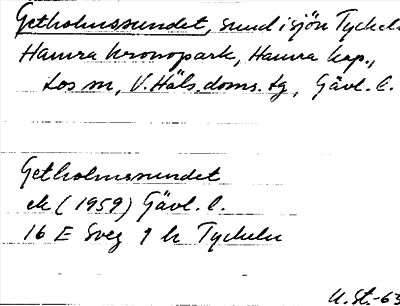 Getholmssundet, sund i sjön Tyckeln
Hamra Kronopark, Hamra kap.,
Los sn, V. Häls. doms. tg, Gävl. l.
Getholmssundet
ek (1959) Gävl. l.
16 E Sveg 9 h Tyckeln
U. St. -63